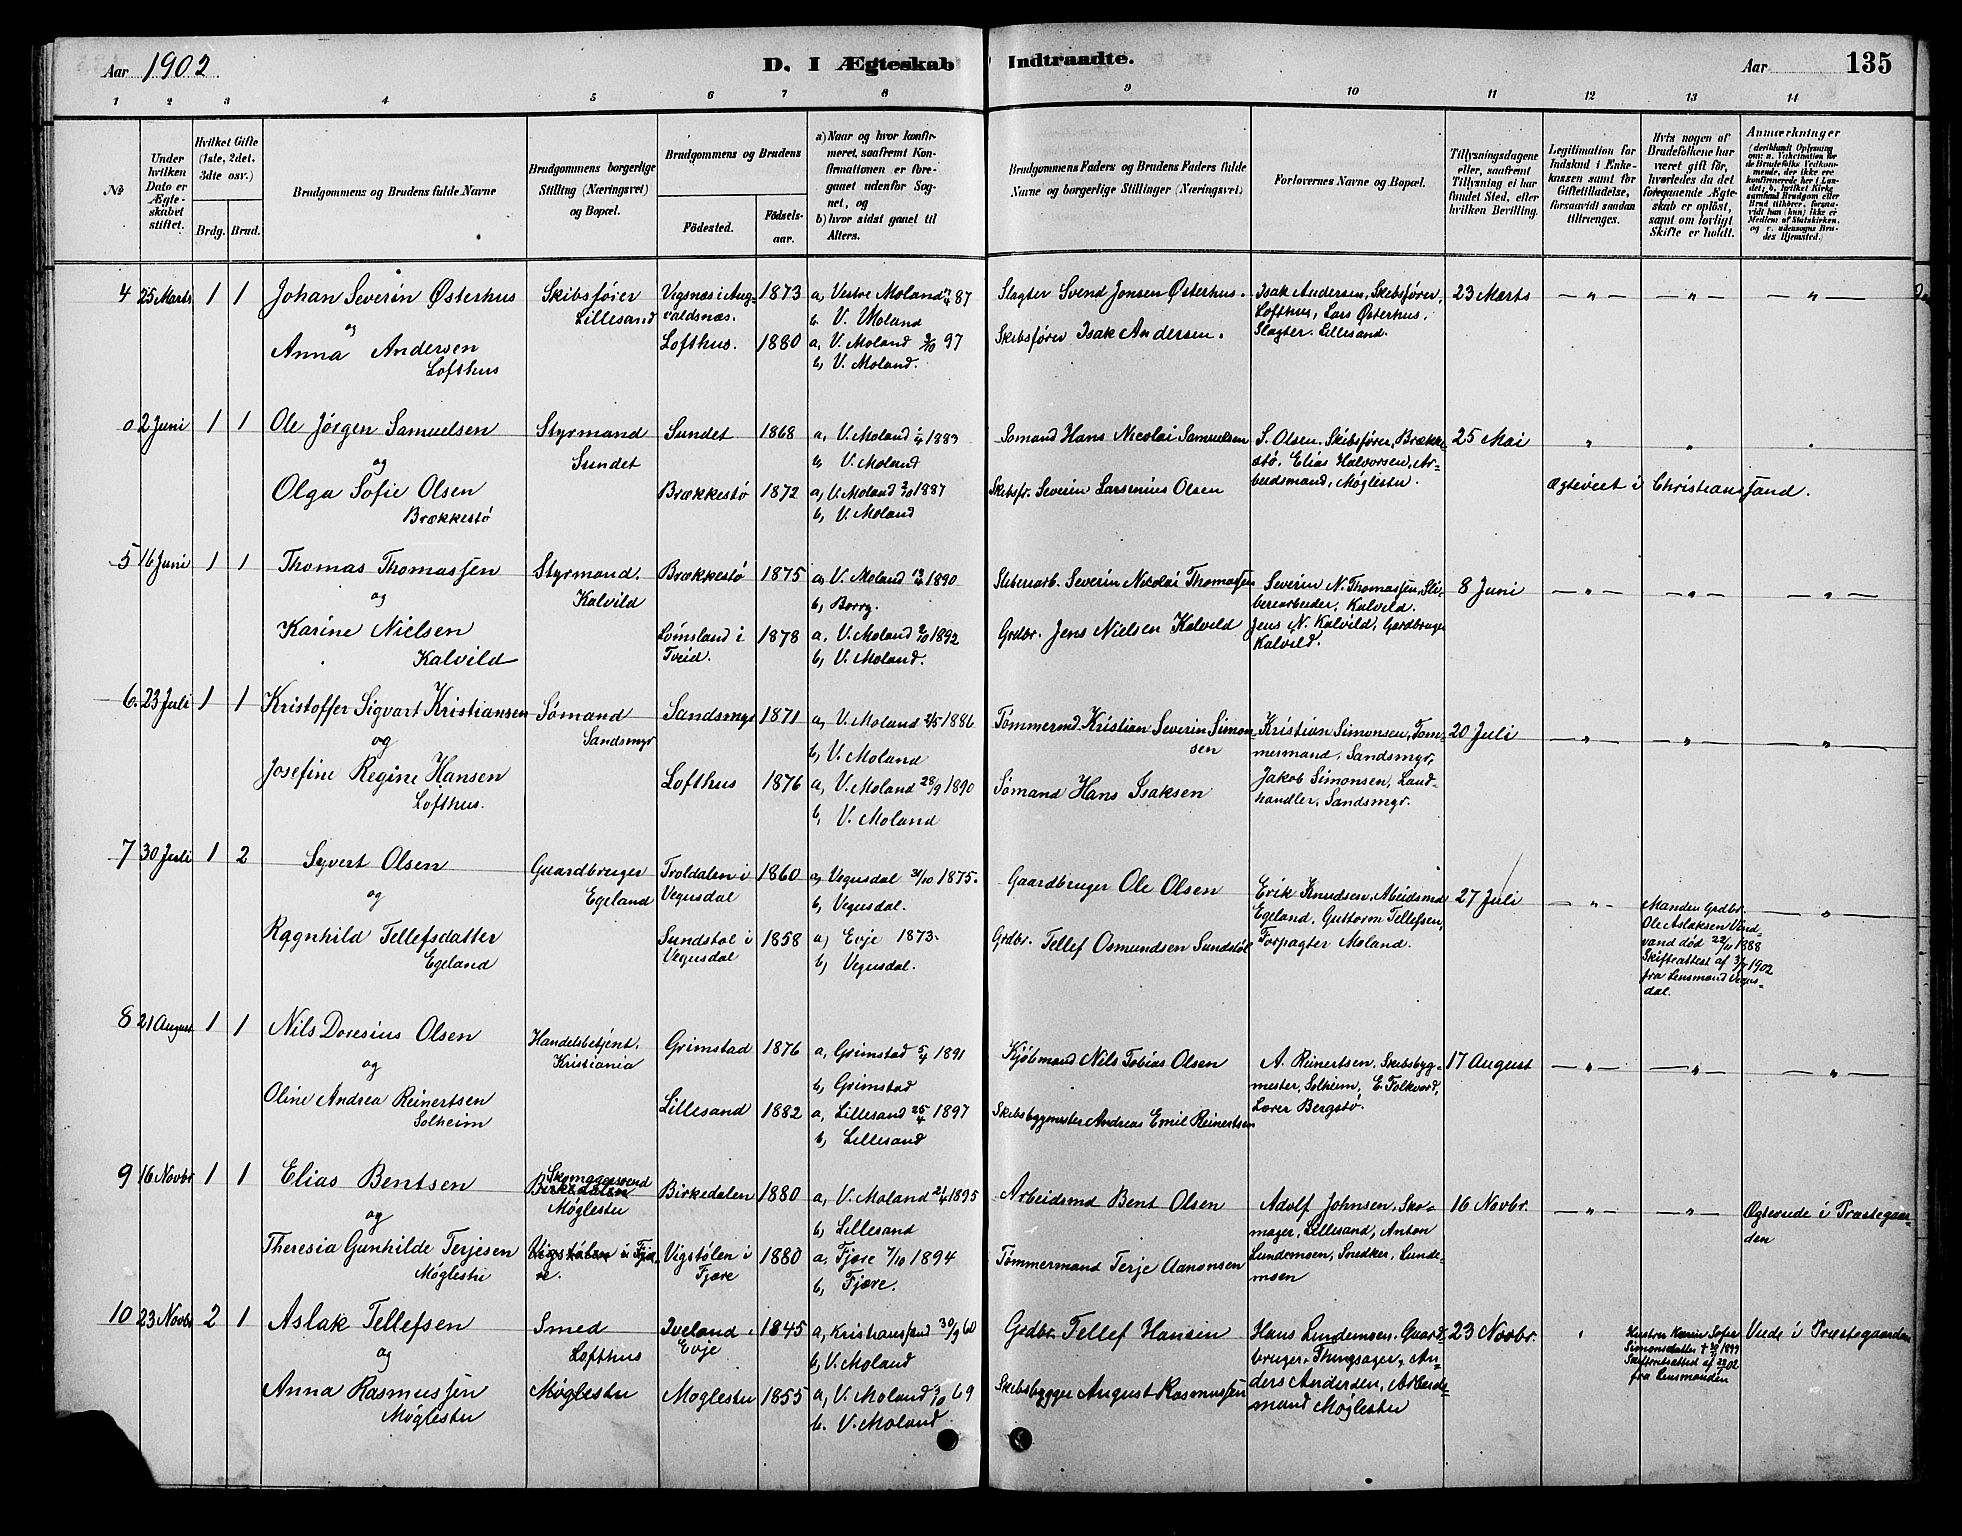 Aar 1902.
D. I Ægteskab Indtraadte.
Aar
135
1 2 3 4 5 6 7 8 9 10 11 12 13 14
No
Under hvilken Dato er Ægteskabet stiftet.
Hvilket Gifte (1ste, 2det, 3die osv.)
Brdg. Brud.
Brudgommens og Brudens fulde Navne
Brudgommens borgerlige Stilling (Næringsvei) og Bopæl.
Brudgommens og Brudens
Födested.
Födselsaar.
a) Naar og hvor konfirmeret, saafremt Konfirmationen er foregaaet udenfor Sognet, og
b) hvor sidst gaaet til Alters.
Brudgommens Faders og Brudens Faders fulde Navne og borgerlige Stillinger (Næringsvei)
Forlovernes Navne og Bopæl.
Tillysningsdagene eller, saafremt Tillysning ei har fundet Sted, efter hvilken Bevilling.
Legitimation for Indskud i Enkekassen samt for Giftetilladelse, forsaavidt saadan tiltrænges.
Hvis nogen af Brudefolkene har været gift för, hvorledes da det foregaaende Ægteskab er oplöst, samt om lovligt Skifte er holdt.
Anmærkninger (deriblandt Oplysning om: a. Vakcination for de Brudefolks Vedkommende, der ikke ere konfirmerede her i Landet, b. hvilket Kirkesamfund Brudgom eller Brud tilhörer, forsaavidt han (hun) ikke er Medlem af Statskirken, og c. udensogns Brudes Hjemsted.)
4 25 Marts 1 1 Johan Severin Østerhus
og
Anna Andersen
Lofthus
Skibsfører
Lillesand
Vigsnæs i Augvaldsnæs. 1873
Lofthus. 1880
a, Vestre Moland 87
b, V. Moland
a, V. Moland 97
b, V. Moland.
Slagter Svend Jonsen Østerhus.
Skibsfører Isak Andersen.
Isak Andersen, Skibsfører,
Lofthus, Lars Østerhus,
Slagter. Lillesand.
23 Marts — " — — " — — " —
0 2 Juni 1 1 Ole Jörgen Samuelsen
og
Olga Sofie Olsen
Brækkestø
Styrmand
Sundet
Sundet 1868
Brækkestø 1872
a, V. Moland 1883
b, V. Moland
a, V. Moland 1887
b, V. Moland
Sømand Hans Nicolai Samuelsen
Skibsfr. Severin Larsenius Olsen
S. Olsen. Skibsfører, Brækkestø, Elias Halvorsen, Arbeidsmand, Møglestu.
25 Mai " " "
Ægteviet i Christianssand.
5 16 Juni 1 1 Thomas Thomassen
og
Karine Nielsen
Kalvild
Styrmand.
Kalvild
Brækkestø 1875
Lømsland i Tveid. 1878
a, V. Moland 1890
b, Borry.
a, V. Moland 1892
b, V. Moland.
Sliberarb. Severin Nicolai Thomassen
Grdbr. Jens Nielsen Kalvild
Severin N. Thomassen, Sliberearbeider, Kalvild.
Jens N. Kalvild, Gardbruger
Kalvild.
8 Juni — " — — " — — " —
6. 23 Juli 1 1 Kristoffer Sigvart Kristiansen
og
Josefine Regine Hansen
Lofthus.
Sømand
Sandsmyr
Sandsmyr 1871
Lofthus 1876
a, V. Moland 2/5 1886
b, V. Moland
a, V. Moland 28/9 1890
b, V. Moland
Tømmermd. Kristian Severin Simonsen
Sømand Hans Isaksen
Kristian Simonsen, Tømmermand, Sandsmyr,
Jakob Simonsen, Landhandler, Sandsmyr.
20 Juli — " — — " — — " —
7 30 Juli 1 2 Syvert Olsen
og
Ragnhild Tellefsdatter
Egeland
Gaardbruger
Egeland
Troldalen i Vegusdal 1860
Sundstøl i Vegusdal 1858
a, Vegusdal 31/10 1875.
b, Vegusdal.
a) Evje 1873.
b, Vegusdal.
Gaardbruger Ole Olsen
Grdbr. Tellef Osmundsen Sundstøl
Erik Knudsen, Arbeidsmd
Egeland, Guttorm Tellefsen,
Forpagter Moland.
27 Juli — " —
Manden Grdbr. Ole Aslaksen Vindvand død 22/11 1888
Skifteattest af 3/7 1902
fra Lensmand Vegusdal.
— " —
8 21 August 1 1 Nils Doresius Olsen
og
Oline Andrea Reinertsen
Solheim
Handelsbetjent.
Kristiania
Grimstad 1876
Lillesand 1882
a, Grimstad 5/4 1891
b, Grimstad
a, Lillesand 25/4 1897
b, Lillesand
Kjøbmand Nils Tobias Olsen
Skibsbygmester Andreas Emil Reinertsen
A. Reinertsen, Skibsbygmester, Solheim, E. Folkvord,
Lærer Bergstø.
17 August — " — — " — — " —
9 16 Novbr 1 1 Elias Bentsen
og
Theresia Gunhilde Terjesen
Møglestu
Skomagersvend
Birkedalen
Møglestu
Vigstølen i Fjære.
Birkedalen 1880
Vigstølen i Fjære 1880
a, V. Moland 21/4 1895
b, Lillesand
a, Fjære 7/10 1894
b, Fjære.
Arbeidsmd Bent Olsen
Tømmermand Terje Aanonsen
Adolf Johnsen, Skomager, Lillesand, Anton
Lundemoen, Snedker, Lundemoen
16 Novbr. — " — — " —
Ægteviede i Præstegaarden
10 23 Novbr 2 1 Aslak Tellefsen
og
Anna Rasmussen
Møglestu
Smed
Lofthus
Møglestu
Iveland, Evje 1845
Møglestu 1855
a, Kristianssand 30/9 60
b, V. Moland
a, V. Moland 3/10 69
b. V. Moland
Grdbr. Tellef Hansen
Skibsbygger August Rasmussen
Hans Lindemoen, Gaardbruger, Thingsager, Anders Andersen, Arbeidsmand Møglestu
23 Novbr. "
Hustru Karen Sofie Simonsdatter † 1899
Skifteattest af 02
fra Lensmanden
Viede i Præstegaarden